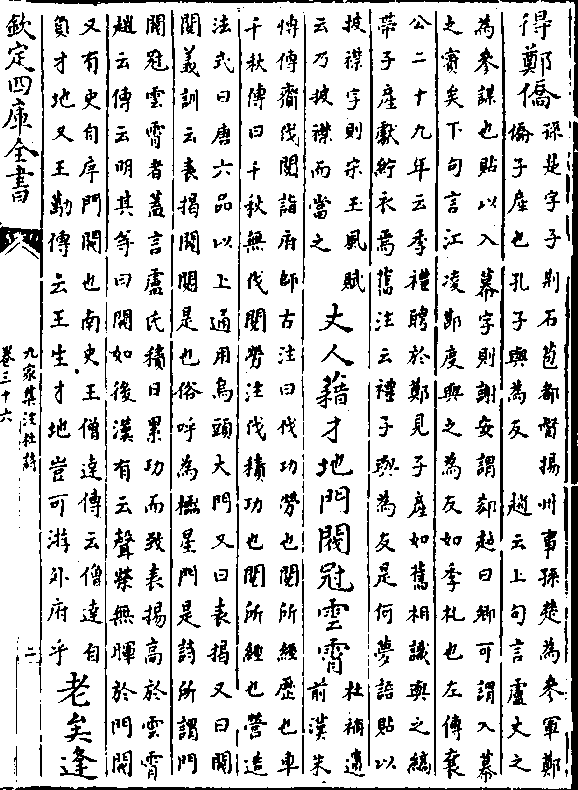 得鄭僑
孫楚字子荆石苞都督揚州事孫楚為參軍鄭
僑子産也孔子與為友 趙云上句言盧丈之
為參謀也貼以入幕字則謝安謂郗超曰卿可謂入幕
之賓矣下句言江凌鄭度與之為友如季札也左傳襄
公二十九年云季禮聘於鄭見子産如舊相識與之縞
帶子産獻紵衣焉舊注云禮子與為友是何夢語貼以
披襟字則宋玉風賦
云乃披襟而當之
丈人藉才地門閥冠雲霄
杜補遺
前漢朱
博傳齎伐閲詣府師古注曰伐功勞也閲所經歷也車
千秋傳曰千秋無伐閲勞注伐積功也閲所經也營造
法式曰唐六品以上通用烏頭大門又曰表揭又曰閥
閲義訓云表揭閥閲是也俗呼為櫺星門是詩所謂門
閥冠雲霄者蓋言盧氏積日累功而致表揚高於雲霄
趙云傳云明其等曰閥如後漢有云聲榮無暉於門閥
又有史自序門閥也南史王僧達傳云僧達自
負才地又王勃傳云王生才地豈可游外府乎
老矣逢
欽定四庫全書
九家集注杜詩
卷三十六
二